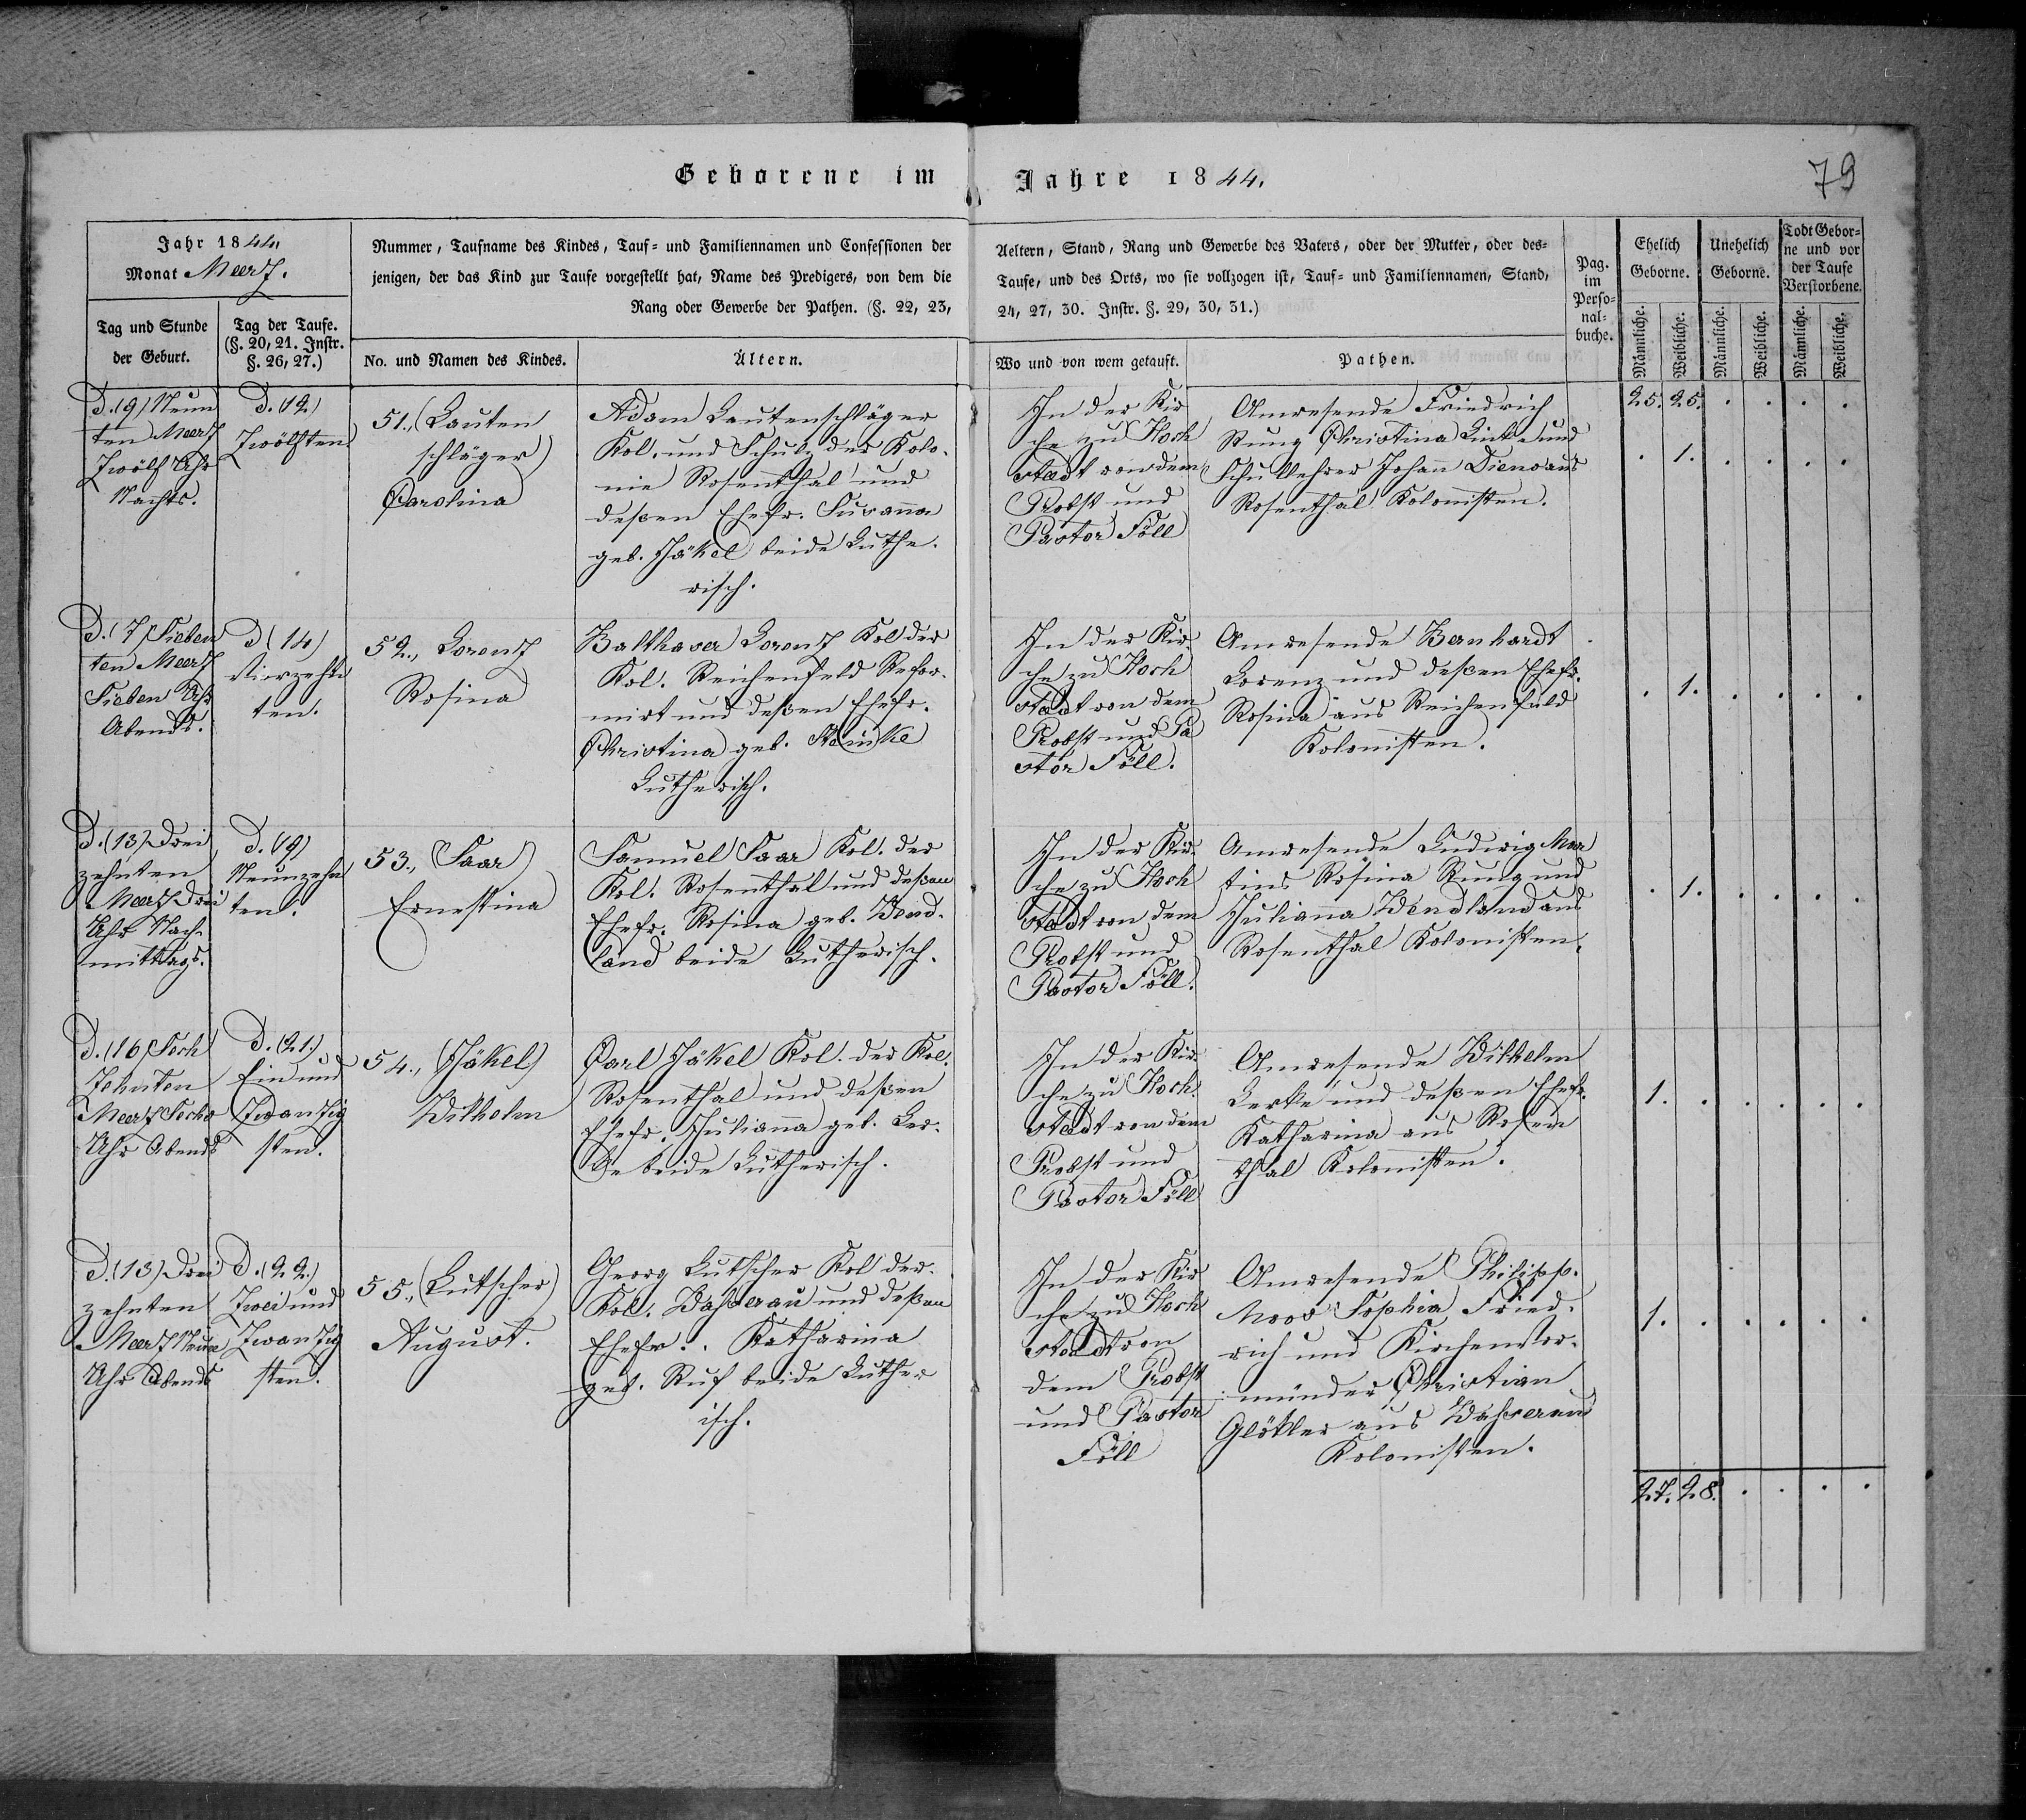 Geborene im Jahre 1844.
79
Jahr 1844
Monat Meerz.
Nummer, Taufname des Kindes, Tauf- und Familiennamen und Confessionen der
jenigen, der das Kind zur Taufe vorgestellt hat, Name des Predigers, von dem die
Rang oder Gewerbe der Pathen. (§. 22, 23,
Aeltern, Stand, Rang und Gewerbe des Vaters, oder der Mutter, oder des-
Taufe, und des Orts, wo sie vollzogen ist, Tauf- und Familiennamen, Stand,
24, 27, 30. Instr. §. 29, 30, 31.)
Pag.
im
Perso-
nal-
buche.
Ehelich
Geborne.
Unehelich
Geborne.
Todt Gebor-
ne und vor
der Taufe
Verstorbene.
Tag und Stunde
der Geburt.
Tag der Taufe.
(§. 20, 21. Instr.
§. 26, 27.)
No. und Namen des Kindes.
Ältern.
Wo und von wem getauft.
Pathen.
Männliche.
Weibliche.
Männliche.
Weibliche.
Männliche.
Weibliche.
25. 25. . . . .
D. (9) Neun
ten Meerz
Zwölf Uhr
Nachts.
D. (12)
Zwölften
51., (Lauten
schläger)
Carolina
Adam Lautenschläger
Kol. und Schulz der Kolo-
nie Rosenthal und
deßen Ehefr. Susanna
geb. Jäkel beide Luthe-
risch.
In der Kir
che zu Hoch
stadt von dem
Probst und
Pastor Föll
Anwesende Friedrich
Rung Christina Link und
Schullehrer Johann Diens aus
Rosenthal Kolonisten.
. 1. . . . .
D. (7) Sieben
ten Meerz
Sieben Uhr
Abends.
D (14)
Vierzehn
ten.
52., Lorenz
Rosina
Balthaser Lorenz Kol der
Kol. Reichenfeld Refor-
mirt und deßen Ehefr.
Christina geb. Steinke
Lutherisch.
In der Kir-
che zu Hoch
stadt von dem
Probst und Pa
stor Föll.
Anwesende Bernhardt
Lorenz und deßen Ehefr.
Rosina aus Reichenfeld
Kolonisten.
. 1. . . . .
D. (13) Drei
zehnten
Meerz Drei
Uhr Nach-
mittags.
D. (19)
Neunzehn
ten.
53., (Saar)
Ernestina
Samuel Saar Kol. der
Kol. Rosenthal und deßen
Ehefr. Rosina geb. Wend-
land beide Lutherisch.
In der Kir-
che zu Hoch
stadt von dem
Probst und
Pastor Föll.
Anwesende Ludwig Mar
tins Rosina Rung und
Julianna Wendland aus
Rosenthal Kolonisten.
. 1. . . . .
D. (16) Sech
zehnten
Meerz Sechs
Uhr Abends
D. (21.)
Ein und
Zwanzig
sten.
54., (Jäkel)
Wilhelm
Carl Jäkel Kol. der Kol.
Rosenthal und deßen
Ehefr. Julianna geb. Ler-
ke beide Lutherisch.
In der Kir-
che zu Hoch-
stadt von dem
Probst und
Pastor Föll
Anwesende Wilhelm
Lerke und deßen Ehefr.
Katharina aus Rosen
thal Kolonisten.
1. . . . . .
D. (13) Drei
zehnten
Meerz Neun
Uhr Abends
D. (22.)
Zwei und
Zwanzig
sten.
55., (Lutscher)
August.
Georg Lutscher Kol der
Kol. Waßerau und deßen
Ehefr. Katharina
geb. Ruf beide Luther
isch.
In der Kir
che zu Hoch
stadt von
dem Probst
und Pastor
Föll
Anwesende Philipp
Moos Sophia Fried-
rich und Kirchenvor-
münder Christian
Glökler aus Waßerau
Kolonisten.
1. . . . . .
27. 28. . . . .